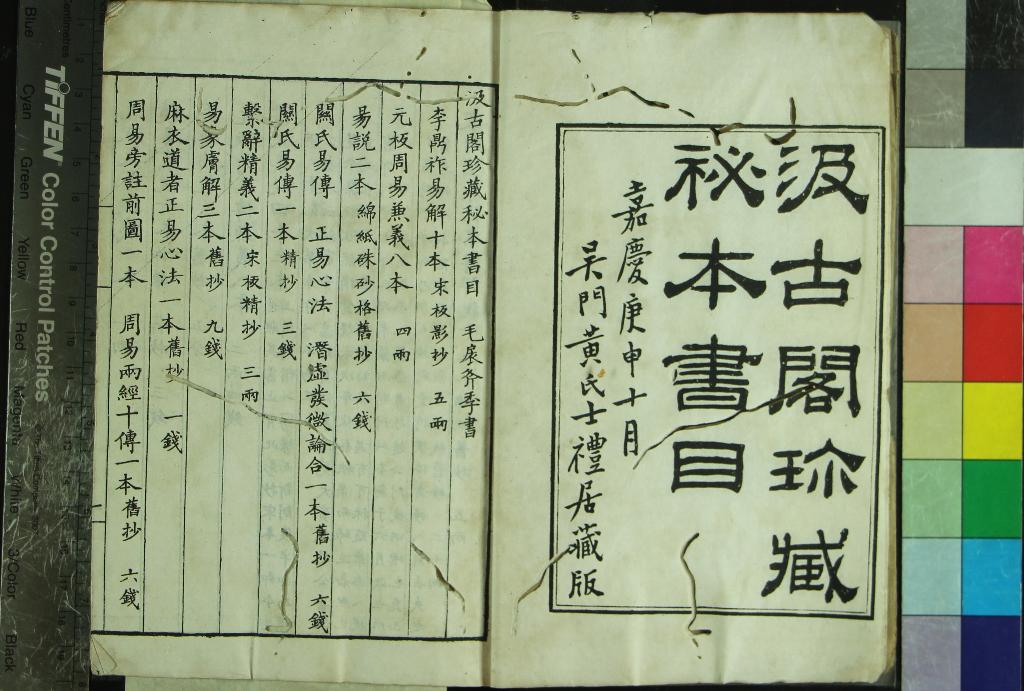 汲古閣珍藏
祕本書目
嘉慶庚申十月
吴門黃氏士禮居藏版
汲古閣珍藏秘本書目 毛扆斧季書
李鼎祚易解十本 宋板影抄 五兩
元板周易兼義八本 四兩
易說二本 綿紙硃砂格舊抄 六錢
關氏易傳 正易心法 潛虛發微論合一本舊抄 六錢
關氏易傳一本 精抄 三錢
繫辭精義二本 宋板精抄 三兩
易象膚解三本 舊抄 九錢
麻衣道者正易心法一本 舊抄 一錢
周易旁註前圖一本 周易兩經十傳一本 舊抄 六錢
TIFFEN Color Control Patches
Centimetres
Blue
Cyan
Green
Yellow
Red
Magenta
White
3/Color
Black